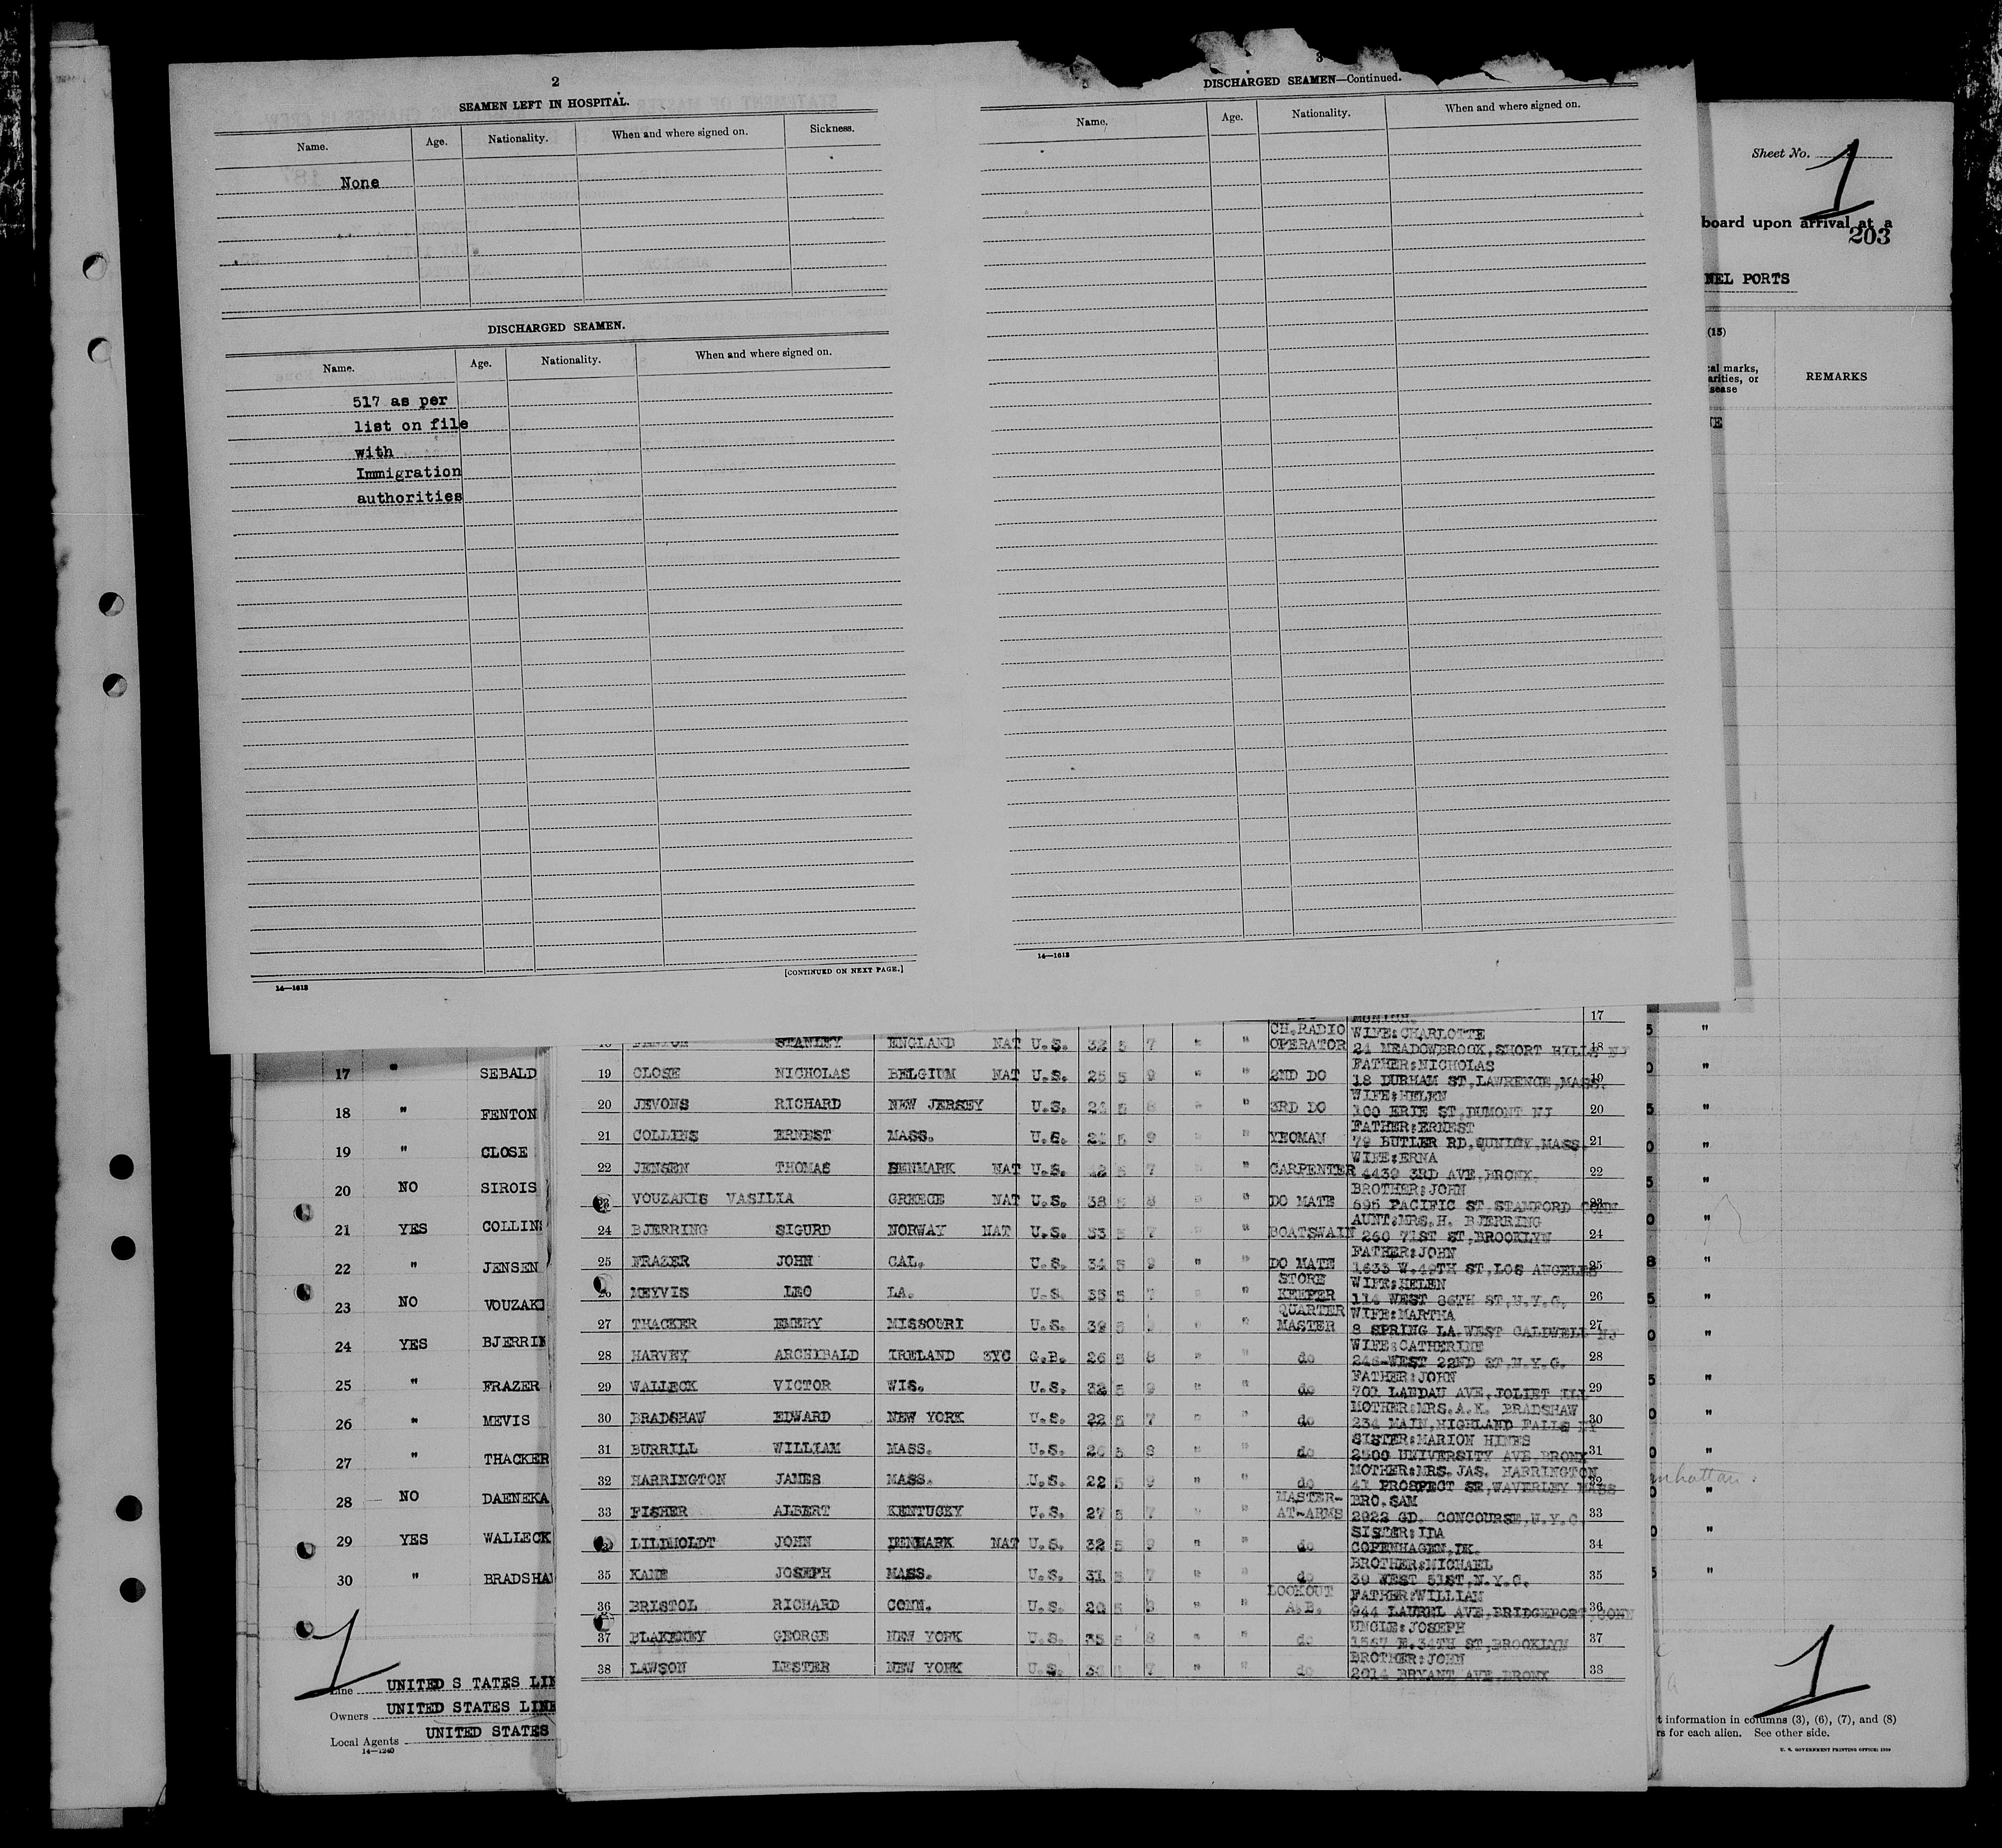 2
SEAMEN LEFT IN HOSPITAL.
Name. Age. Nationality. When and where signed on. Sickness.
None
DISCHARGED SEAMEN.
Name. Age. Nationality. When and where signed on.
517 as per
list on file
with
Immigration
authorities
[CONTINUED ON NEXT PAGE.]
14—1613
3
DISCHARGED SEAMEN—Continued.
Name. Age. Nationality. When and where signed on.
14—1613
Sheet No. 1
board upon arrival at a
203
NEL PORTS
(15)
cal marks,
arities, or
sease
REMARKS
17 " SEBALD
18 " FENTON
19 " CLOSE
20 NO SIROIS
21 YES COLLINS
22 " JENSEN
23 NO VOUZAKI
24 YES BJERRIN
25 " FRAZER
26 " MEVIS
27 " THACKER
28 NO DAENEKA
29 YES WALLECK
30 " BRADSHAW
1
Line UNITED S TATES LIN
Owners UNITED STATES LINE
Local Agents UNITED STATES
14—1240
MUNICH. 17
STANLEY ENGLAND NAT U.S. 32 5 7 " " CH.RADIO OPERATOR WIFE:CHARLOTTE
24 MEADOWBROOK, SHORT HILLS NJ 18
19 CLOSE NICHOLAS BELGIUM NAT U.S. 25 5 9 " " 2ND DO FATHER:NICHOLAS
18 DURHAM ST,LAWRENCE,MASS. 19
20 JEVONS RICHARD NEW JERSEY U.S. 5 8 " " 3RD DO WIFE:HELEN
100 ERIE ST,DUMONT NJ 20
21 COLLINS ERNEST MASS. U.S. 5 9 " " YEOMAN FATHER:ERNEST
79 BUTLER RD,QUNICY,MASS. 21
22 JENSEN THOMAS DENMARK NAT U.S. 42 5 7 " " CARPENTER WIFE:ERNA
4439 3RD AVE,BRONX. 22
23 VOUZAKIS VASILIA GREECE NAT U.S. 38 5 8 " " DO MATE BROTHER:JOHN
595 PACIFIC ST.STAMFORD CONN 23
24 BJERRING SIGURD NORWAY NAT U.S. 33 5 7 " " BOATSWAIN AUNT:MRS.H. BJERRING
260 71ST ST,BROOKLYN 24
25 FRAZER JOHN CAL. U.S. 34 5 9 " " DO MATE FATHER:JOHN
1633 W.49TH ST,LOS ANGELES 25
26 MEYVIS LEO LA. U.S. 35 5 7 " " STORE KEEPER WIFE:HELEN
114 WEST 86TH ST,N.Y.C. 26
27 THACKER EMERY MISSOURI U.S. 39 5 " " QUARTER MASTER WIFE:MARTHA
8 SPRING LA.WEST CALDWELL NJ 27
28 HARVEY ARCHIBALD IRELAND 3YC G.B. 26 5 8 " " do WIFE:CATHERINE
WEST 22ND ST,N.Y.C. 28
29 WALLECK VICTOR WIS. U.S. 32 5 9 " " do FATHER:JOHN
701 LANDAU AVE,JOLIET ILL 29
30 BRADSHAW EDWARD NEW YORK U.S. 22 5 7 " " do MOTHER:MRS.A.K. BRADSHAW
234 MAIN,HIGHLAND FALLS NY 30
31 BURRILL WILLIAM MASS. U.S. 26 5 8 " " do SISTER:MARION HINES
2500 UNIVERSITY AVE,BRONX 31
32 HARRINGTON JAMES MASS. U.S. 22 5 9 " " do MOTHER:MRS. JAS. HARRINGTON
41 PROSPECT ST,WAVERLEY MASS 32
33 FISHER ALBERT KENTUCKY U.S. 27 5 7 " " MASTER-AT-ARMS BRO.SAM
2922 GD. CONCOURSE,N.Y.C 33
LILDHOLDT JOHN DENMARK NAT U.S. 32 5 9 " " do SISTER:IDA
COPENHAGEN,DK. 34
35 KANE JOSEPH MASS. U.S. 31 5 7 " " do BROTHER:MICHAEL
39 WEST 51ST,N.Y.C. 35
36 BRISTOL RICHARD CONN. U.S. 20 5 8 " " LOOKOUT A.B. FATHER:WILLIAM
944 LAUREL AVE,BRIDGEPORT,CONN 36
37 BLAKENEY GEORGE NEW YORK U.S. 35 5 8 " " do UNCLE:JOSEPH
1567 E.34TH ST,BROOKLYN 37
38 LAWSON LESTER NEW YORK U.S. 7 " " do BROTHER:JOHN
2014 BRYANT AVE,BRONX 38
1
t information in columns (3), (6), (7), and (8)
rs for each alien. See other side.
U. S. GOVERNMENT PRINTING OFFICE: 1939